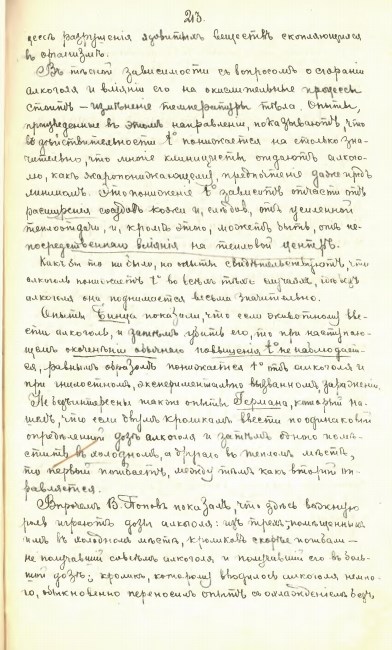 23.
цессъ разрушенія ядовитыхъ веществъ скопляющихся
въ организмѣ.
Въ тѣсной зависимости съ вопросомъ о сгораніи
алкоголя и вліяніи его на окислительные процессы
стоитъ – измѣненіе температуры тѣла. Опыты,
произведенные въ этомъ направленіи, показываютъ, что
въ дѣйствительности t° понижается на столько зна-
чительно, что многіе клиницисты отдаютъ алкого-
лю, какъ жаропонижающему, предпочтеніе даже предъ
Это пониженіе t° зависитъ отчасти отъ
расширенія сосудовъ кожи и, слѣдов., отъ усиленной
теплоотдачи, и, кромѣ этого, можетъ быть, отъ не-
посредственнаго вліянія на тепловой центръ.
Какъ бы то ни было, но опыты свидѣтельствуютъ, что
алкоголь понижаетъ t° во всѣхъ тѣхъ случаяхъ, гдѣ безъ
алкоголя она поднимается весьма значительно.
Опыты Бинца показали, что если животному вве-
сти алкоголь, и затѣмъ убить его, то при наступаю-
щемъ окоченѣніи обычнаго повышенія t° не наблюдает-
ся, равнымъ образомъ понижается t° отъ алкоголя и
при гнилостномъ, экспериментально вызванномъ, зараженіи.
Не безъинтересны также опыты Германа, который на-
шелъ, что если двумъ кроликамъ ввести по одинаковой
опредѣленной дозѣ алкоголя и затѣмъ одного помѣ-
стить въ холодномъ, а другаго въ тепломъ мѣстѣ,
то первый погибаетъ, между тѣмъ какъ второй оп-
равляется.
Впрочемъ В. Поповъ показалъ, что здѣсь важную
роль играютъ дозы алкоголя: изъ трехъ помѣщенныхъ
имъ въ холодномъ мѣстѣ, кроликовъ скорѣе погибали –
не получавшій совсѣмъ алкоголя и получавшій его въ боль-
шой дозѣ; кроликъ, которому вводилось алкоголя немно-
го, обыкновенно переносилъ опытъ съ охлажденіемъ безъ